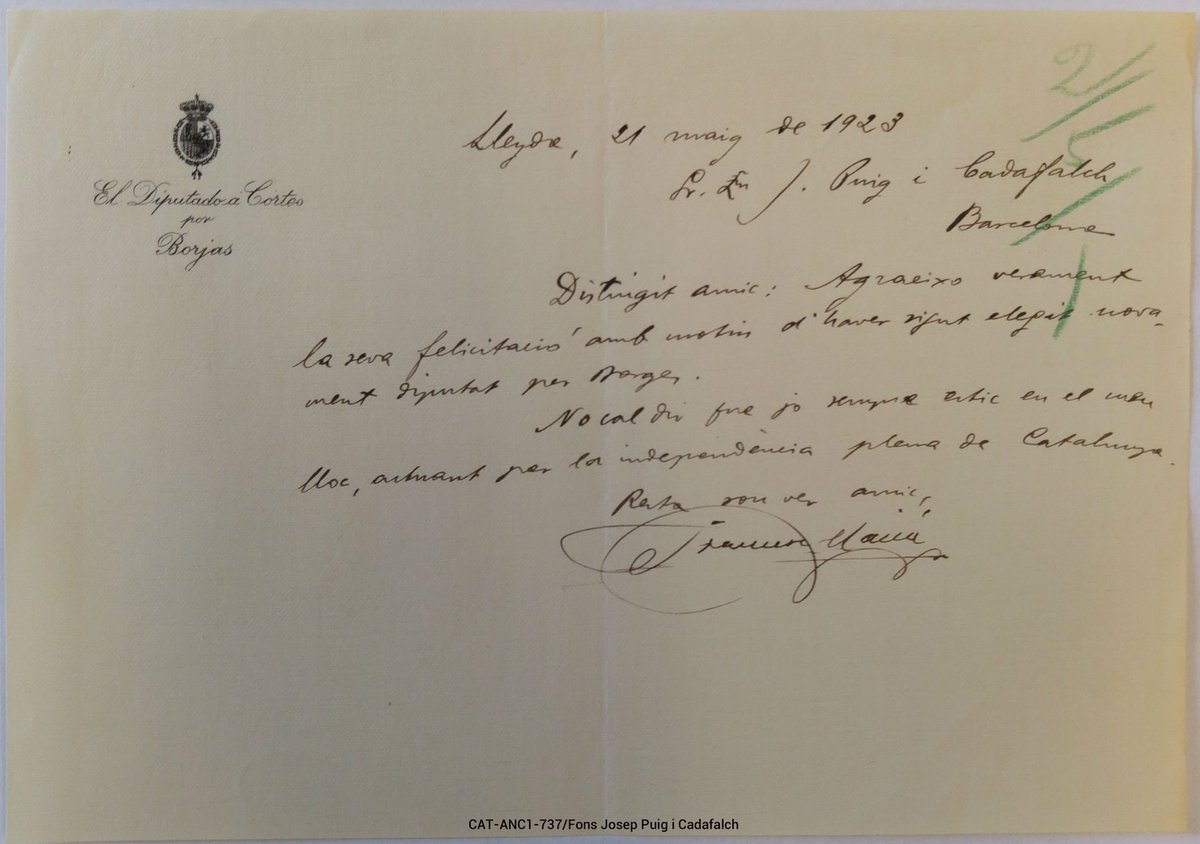 El Diputado a Cortes
por
Borjas
2/5
Lleyda, 21 maig de 1923
Sr. En J. Puig i Cadafalch
Barcelona
Distingit amic: Agraeixo verament
la seva felicitació amb motiu d'haver sigut elegit nova-
ment diputat per Borges.
No cal dir que jo sempre estic en el meu
lloc, actuant per la independència plena de Catalunya.
Resta son ver amic,
Francesc Macià
CAT-ANC1-737/Fons Josep Puig i Cadafalch